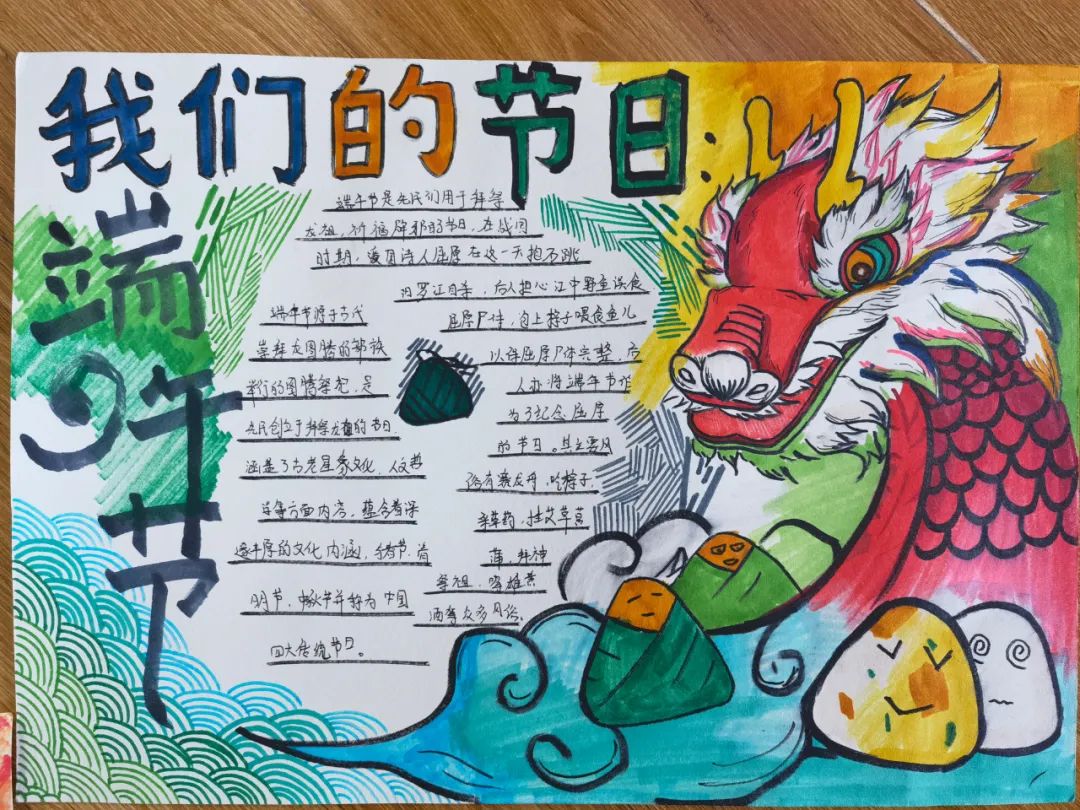 我们的节日
端午节
端午节是先民们用于拜祭
龙祖，祈福辟邪的节日，在战国
时期，爱国诗人屈原在这一天抱石跳
汨罗江自杀，后人担心江中野鱼误食
屈原尸体，向上粽子喂食鱼儿
以许屈原尸体完整，后
人亦将端午节作
为了纪念屈原
的节日。其主要风
俗有赛龙舟，吃粽子，
采草药，挂艾草菖
蒲，拜神
祭祖，喝雄黄
酒等众多风俗。
端午节源于古代
崇拜龙图腾的部族
举行的图腾祭祀，是
先民创立于拜祭龙祖的节日
涵盖了古老星象文化，人文哲
学等方面内容，蕴含着深
邃丰厚的文化内涵，与春节，清
明节，中秋节并称为中国
四大传统节日。